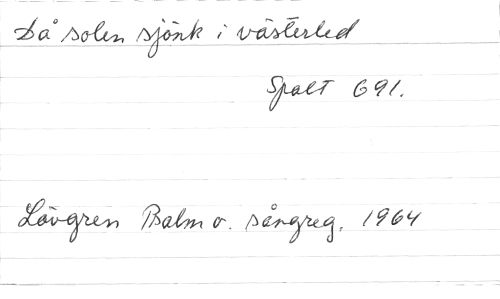 Då solen sjönk i västerled
Spalt 691.
Lövgren Psalm o. sångreg. 1964